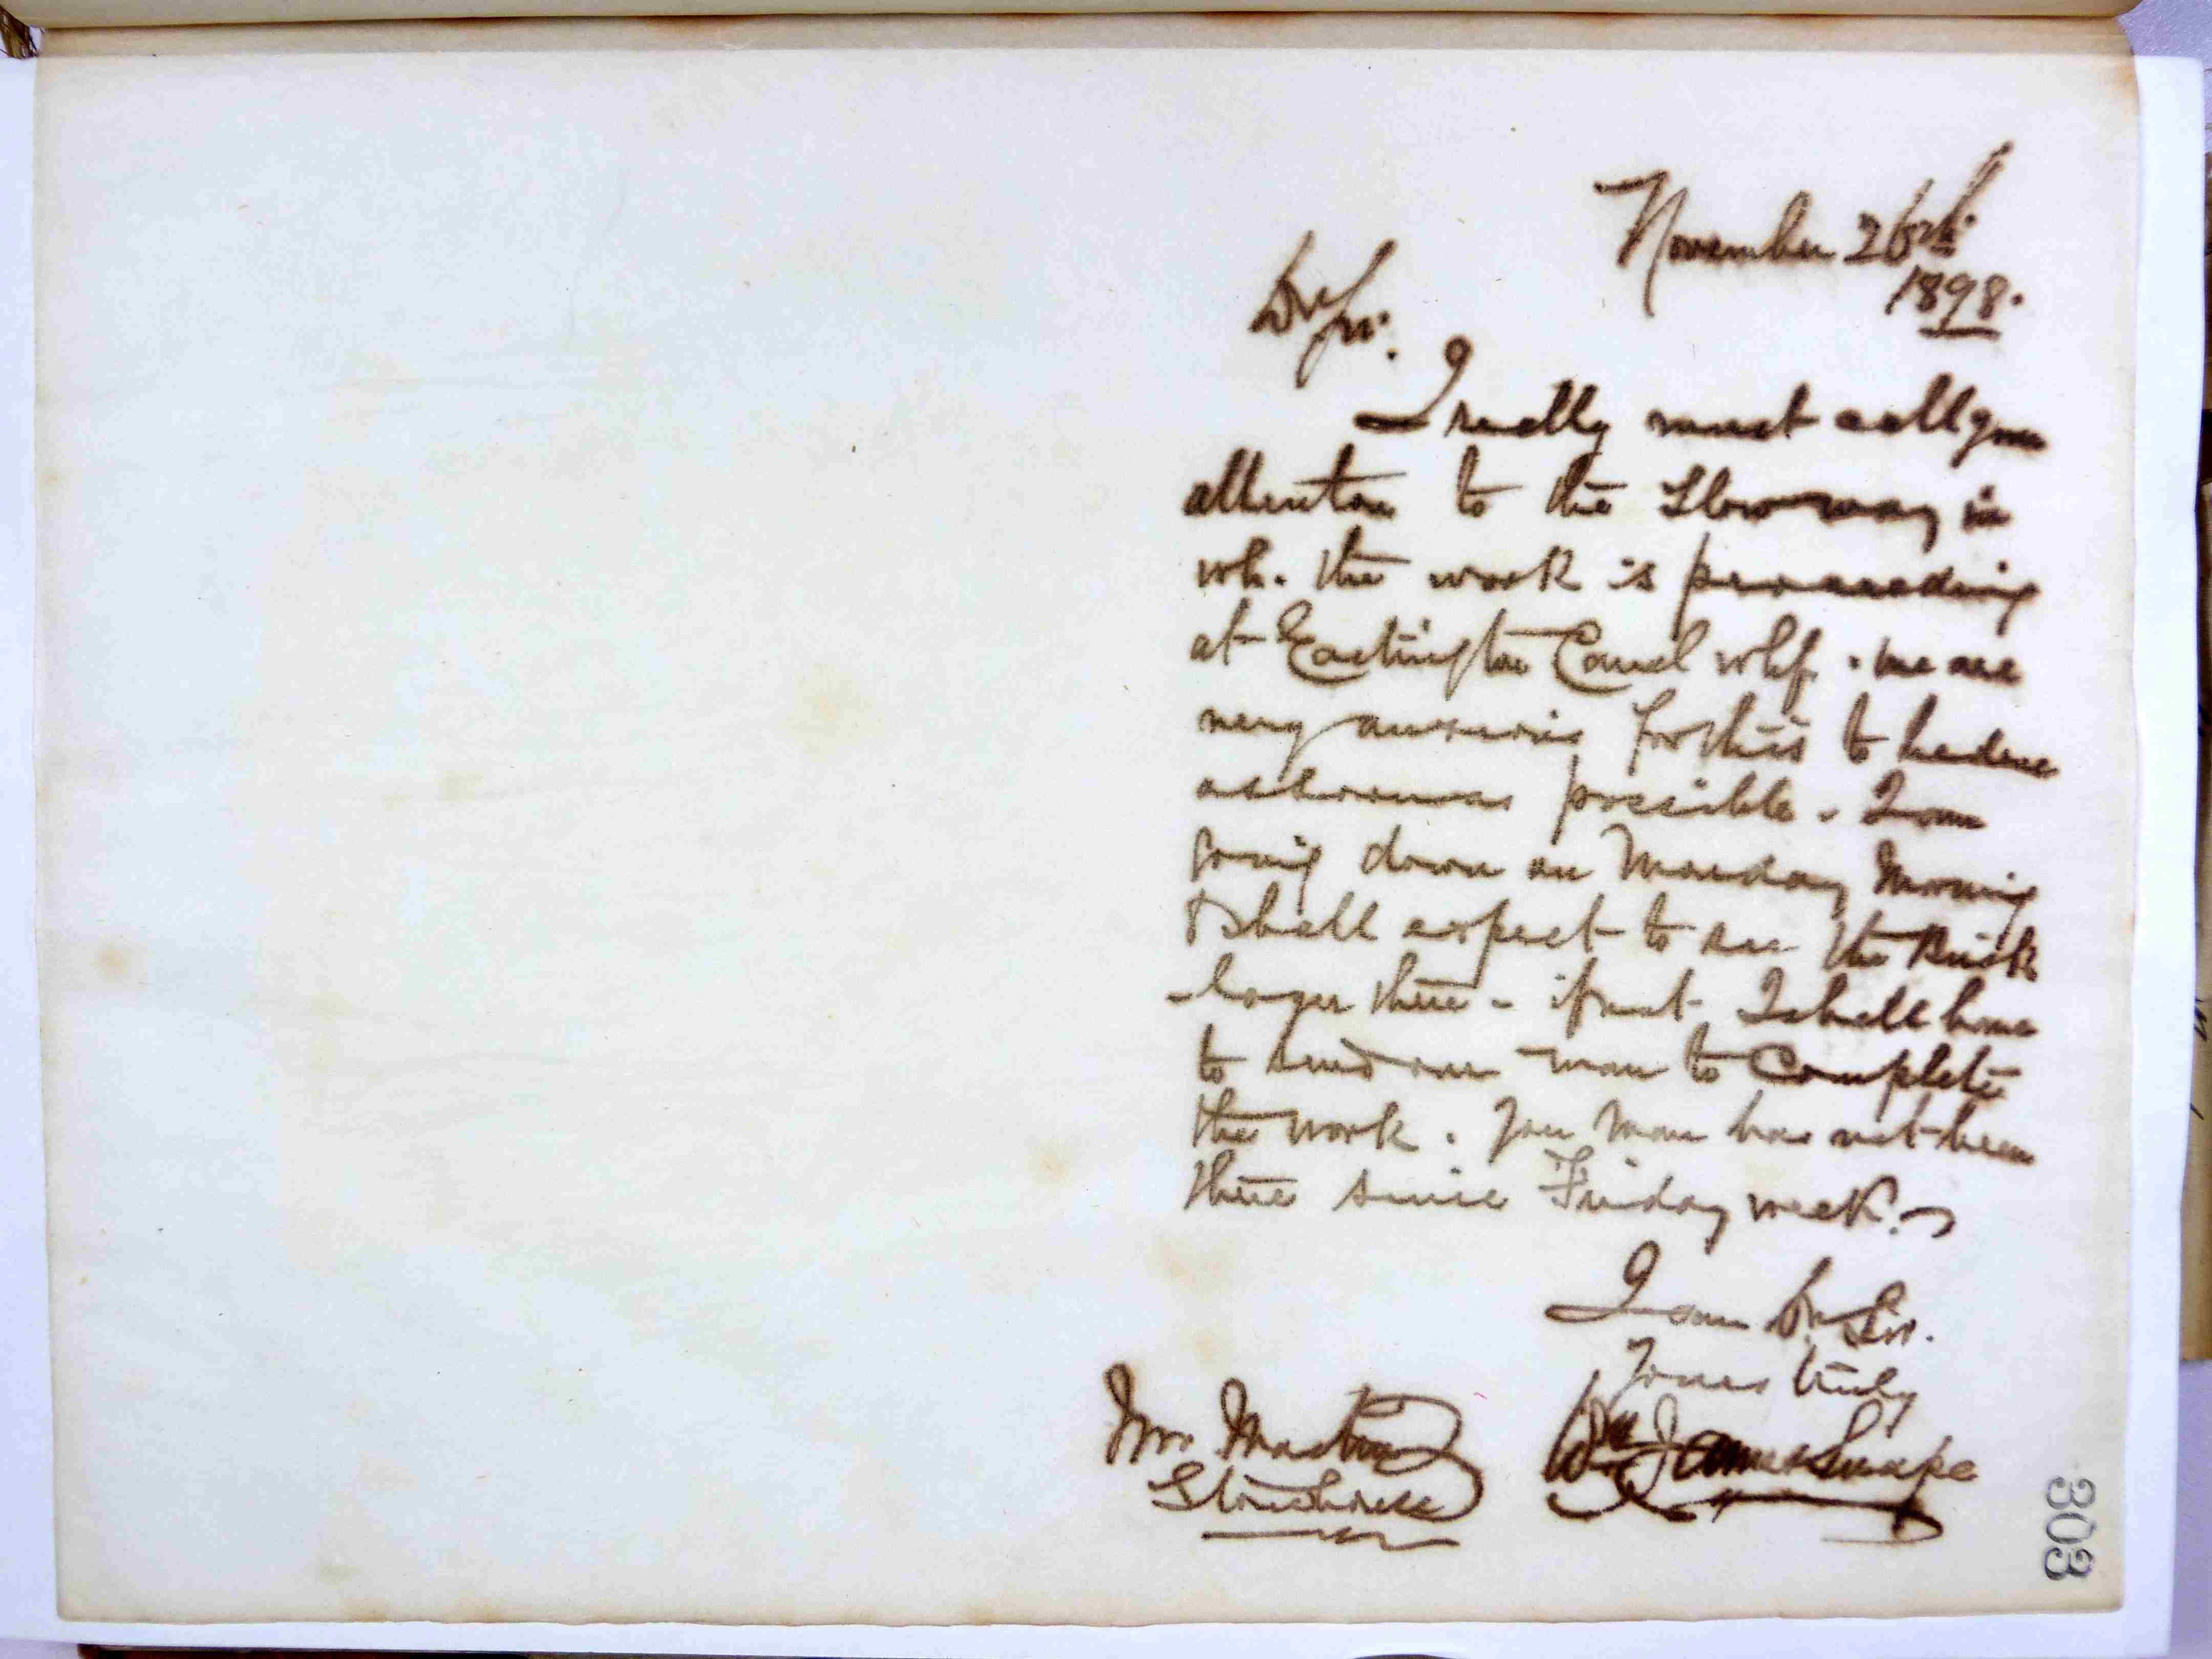 November 26th
1898.
Dr Sir.
I really must call your
attention to the slow way in
wh. the work is proceeding
at Eastington Canal whf. we are
very anxious for this to be done
as soon as possible. I am
going down on Monday Morning
& shall expect to see the Brick
-layer there - if not I shall have
to send our man to Complete
the work. Your Man has not been
there since Friday week.
I am Dr Sir.
Yours truly
Wm James Snape
Mr Masters
Stonehouse
303